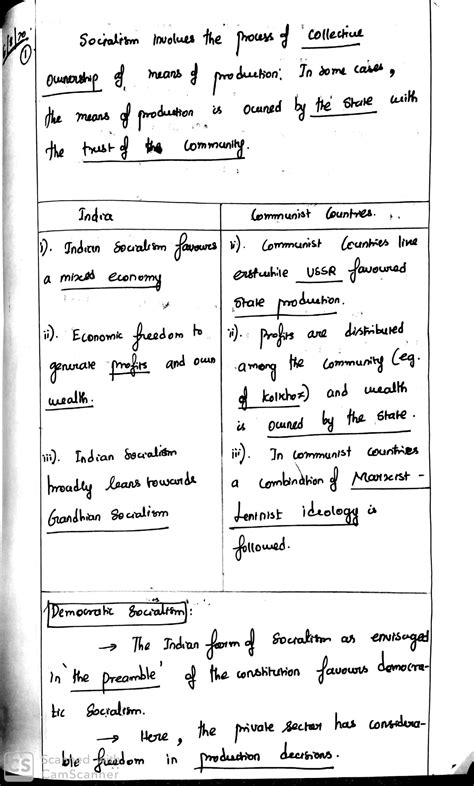 6/8/20
1
Socialism Involves the process of collective
ownership of means of production. In some cases,
the means of production is owned by the state with
the trust of the community.
India
Communist Countries.
i). Indian Socialism favours
a mixed economy
ii). Economic freedom to
generate profits and own
wealth.
iii). Indian Socialism
broadly leans towards
Gandhian Socialism
i). Communist Countries like
erstwhile USSR favoured
State production.
ii). profits are distributed
among the community (eg.
of kolkhoz) and wealth
is owned by the State.
iii). In communist countries
a combination of Marxist-
Leninist ideology is
followed.
Democratic Socialism:
→ The Indian form of Socialism as envisaged
in 'the preamble' of the constitution favours democra-
tic Socialism.
→ Here, the private sector has considera-
ble freedom in production decisions.
CS Scanned with
CamScanner